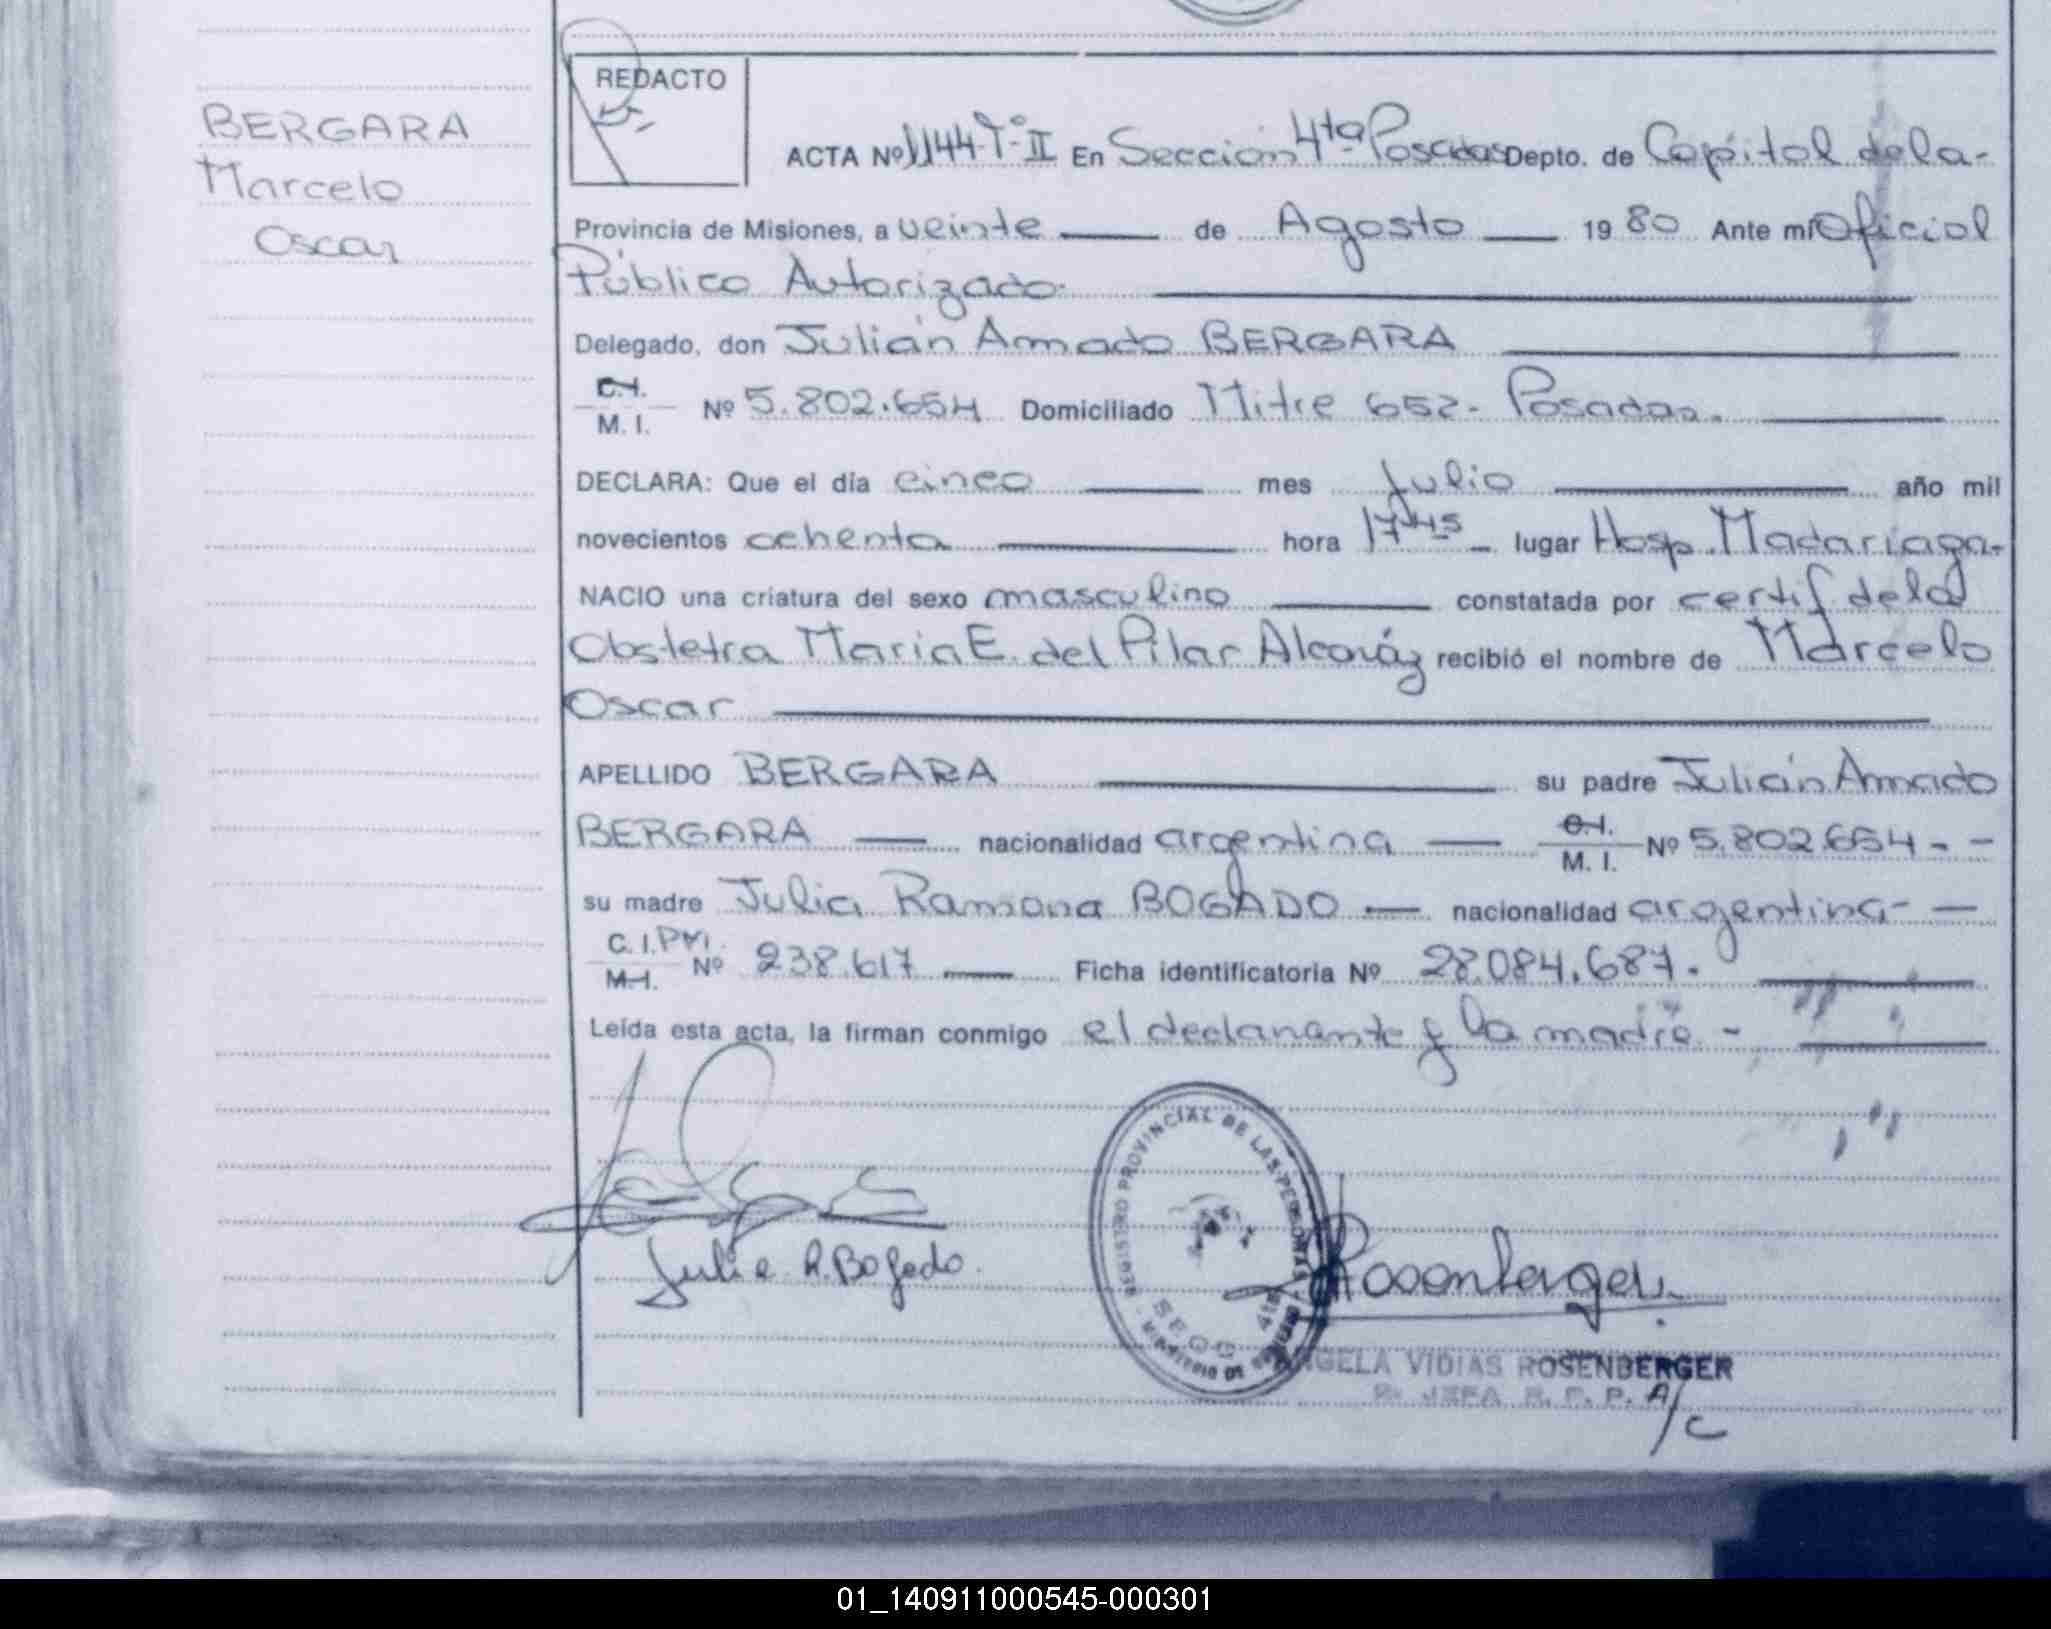 BERGARA
Marcelo
Oscar
REDACTO
ACTA Nº 1144 Tº II En Sección 4ta Posadas Depto. de Capital de la-
Provincia de Misiones, a veinte de Agosto 1980 Ante mí Oficial
Público Autorizado
Delegado, don Julián Amado BERGARA
C.I.
M. I. Nº 5.802.654 Domiciliado Mitre 652- Posadas.
DECLARA: Que el día cinco mes Julio año mil
novecientos ochenta hora 17 45 - lugar Hosp. Madariaga-
NACIO una criatura del sexo masculino constatada por certif de la
Obstetra Maria E. del Pilar Alcaráz recibió el nombre de Marcelo
Oscar
APELLIDO BERGARA su padre Julián Amado
BERGARA nacionalidad argentina C.I.
M. I. Nº 5.802.654 - -
su madre Julia Ramona BOGADO nacionalidad argentina- -
C. I.
M. I. Nº 238.617 Ficha identificatoria Nº 28.084.687.
Leída esta acta, la firman conmigo el declarante y la madre -
Julia R. Bogado.
REGISTRO PROVINCIAL DE LAS PERSONAS
SECC 4ta
Rosenberger
ANGELA VIDIAS ROSENBERGER
JEFA R. P. P.
A/C
01_140911000545-000301